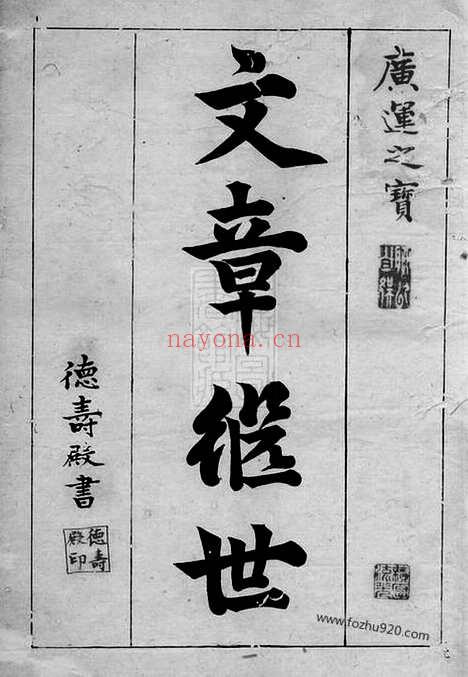 廣運之寶
文章継世
nayona.cn
德壽殿書
德壽
殿印
www.fozhu920.com